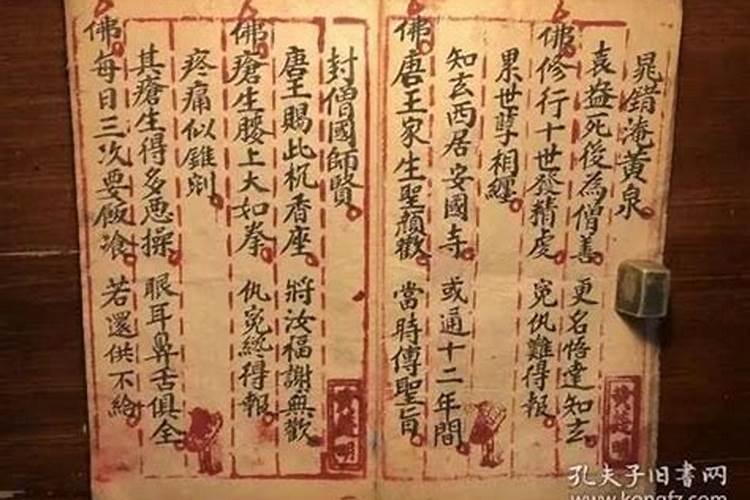 晁錯淹黃泉
袁益死後為僧善 更名悟達知玄
佛修行十世發精虔 寃仇難得報
累世孽相纏
知玄西居安國寺 或通十二年間
佛唐王家生聖顏歡 當時傳聖旨
封僧國師賢
唐王賜此杌香座 將汝福謝無歡
佛瘡生腰上大如拳 仇寃終得報
疼痛似錐剜
其瘡生得多悪操 眼耳鼻舌俱全
佛每日三次要飯飡 若還供不給
孔夫子旧书网